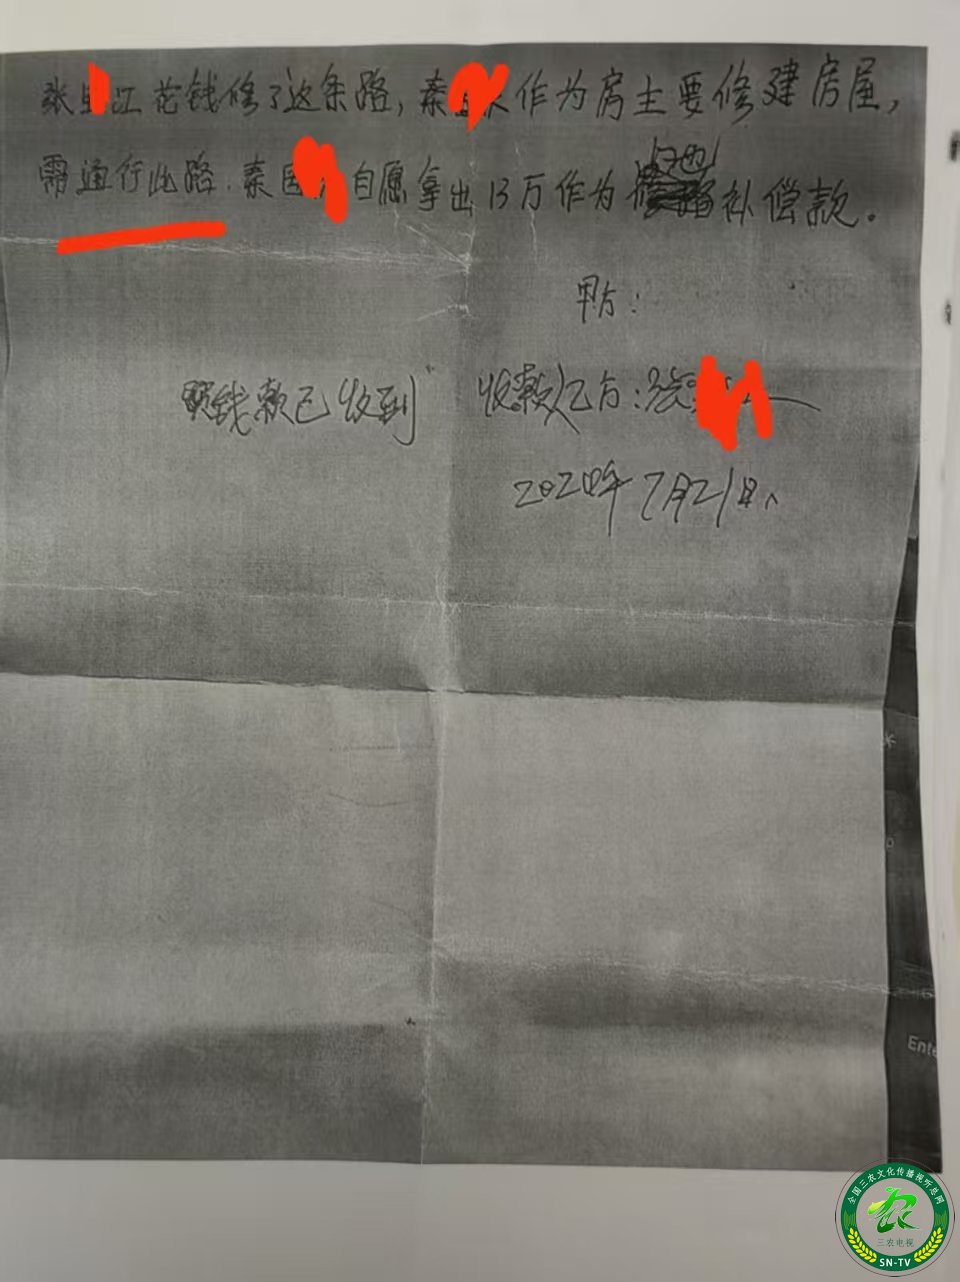 张 江花钱修了这条路，秦 作为房主要修建房屋，
需通行此路．秦国 自愿拿出13万作为 占地 补偿款。
甲方：
钱款已收到 收款乙方：张
2020年7月21日
Ente
全国三农文化传播视听总网
农
三农电视
SN-TV